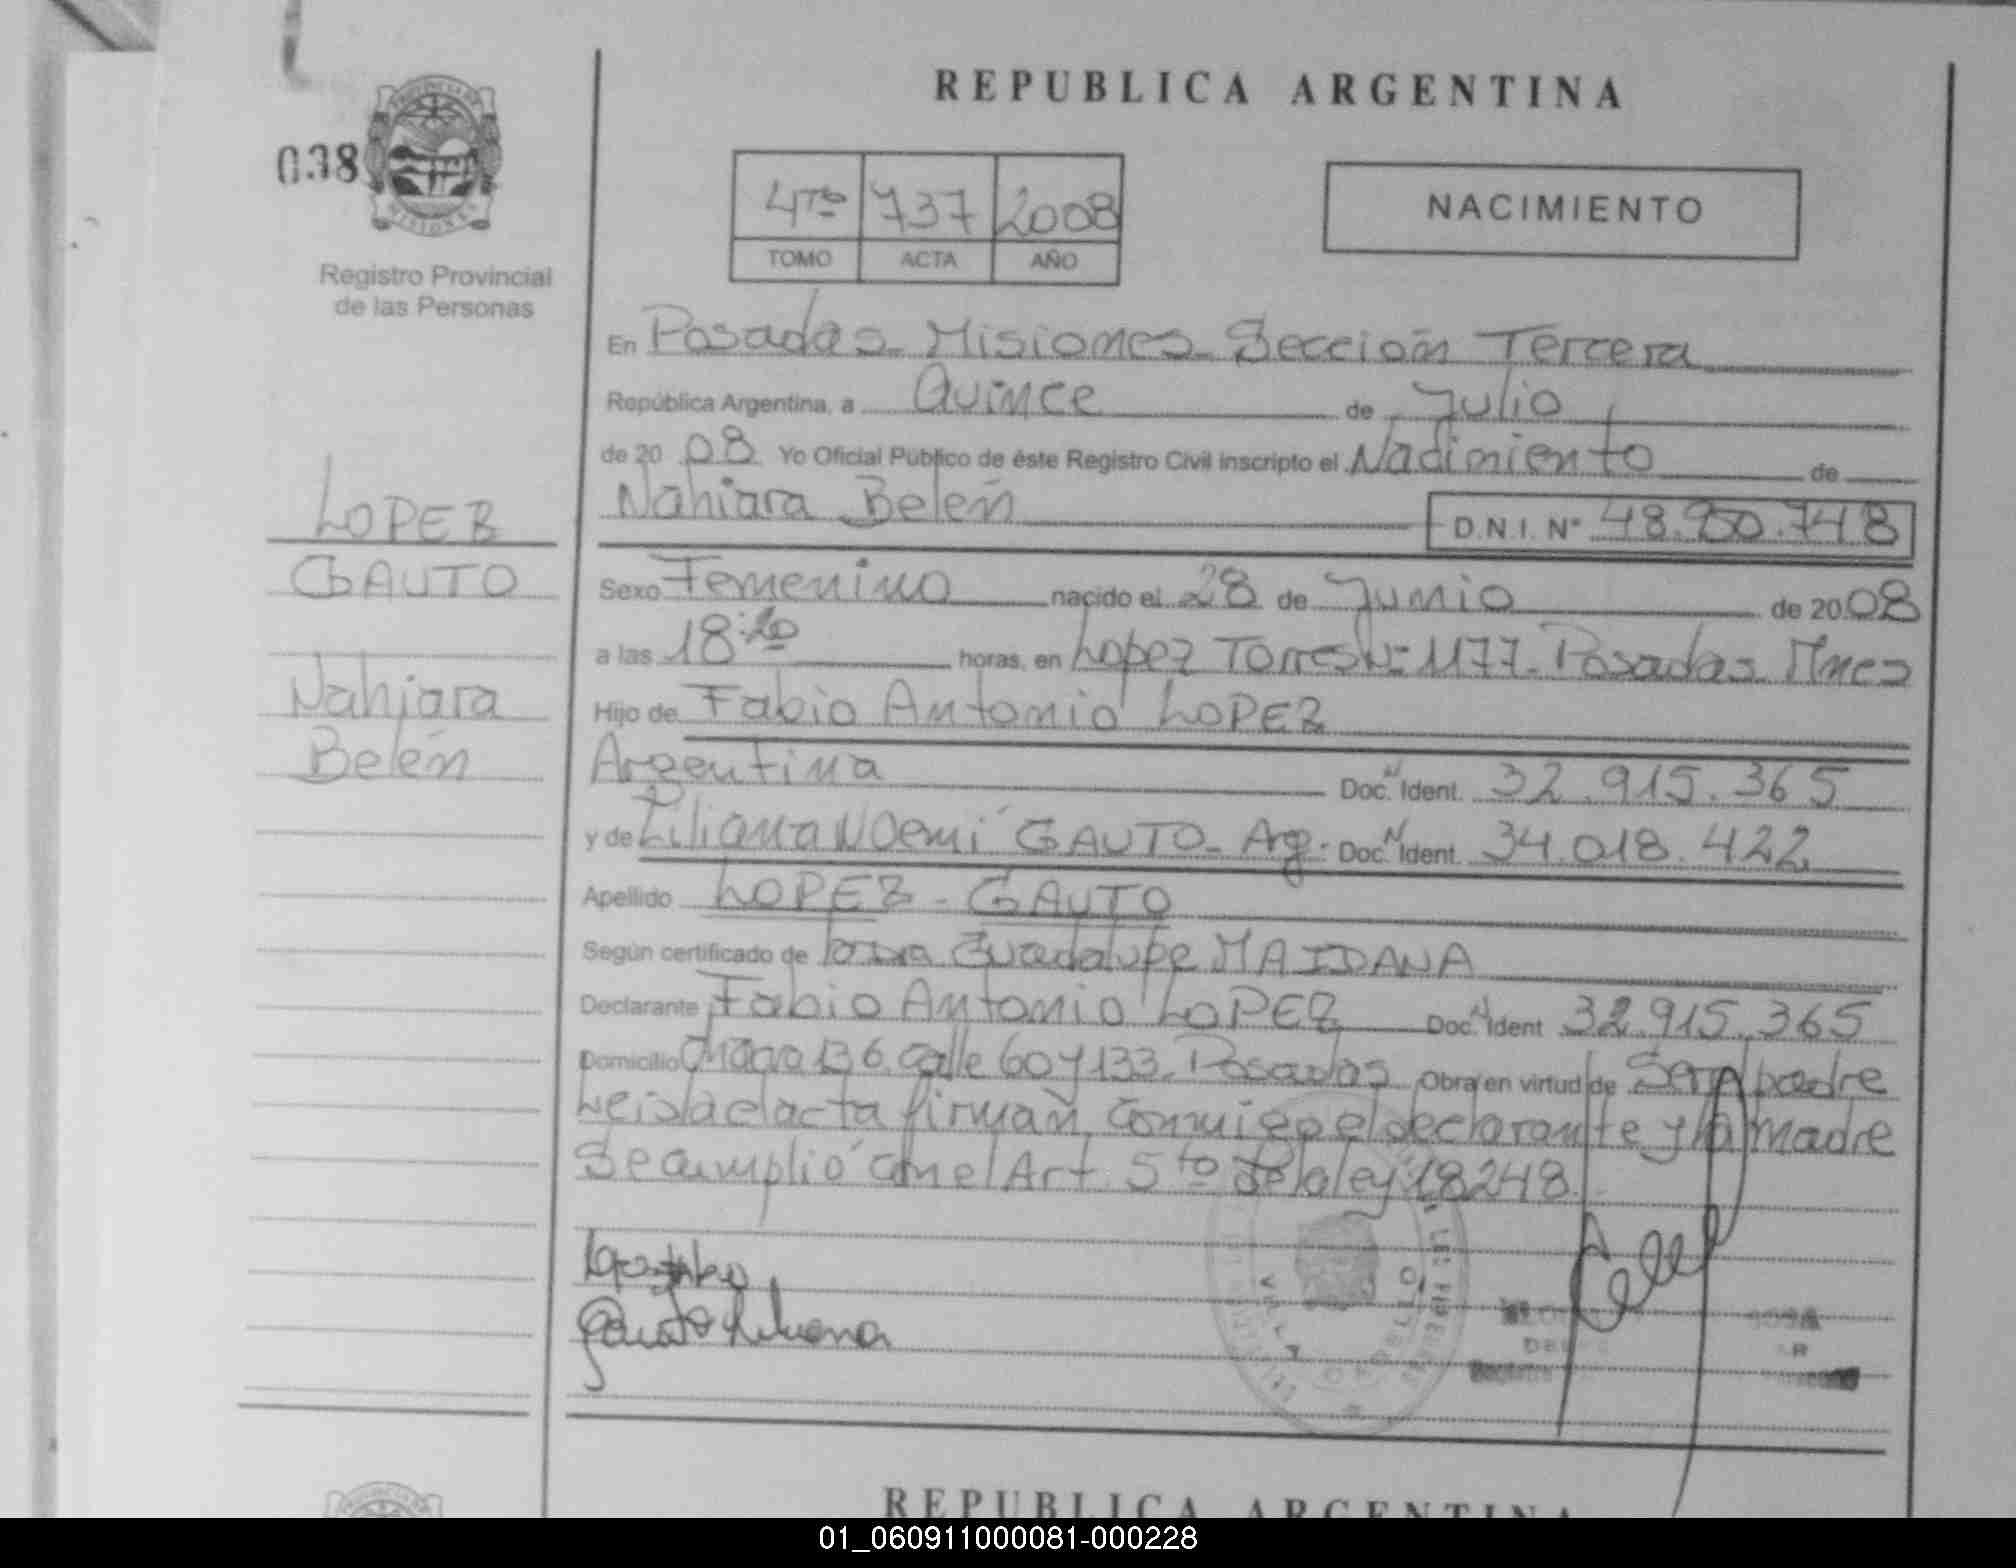 REPUBLICA ARGENTINA
038
PROVINCIA DE
MISIONES
Registro Provincial
de las Personas
4to 737 2008
TOMO ACTA AÑO
NACIMIENTO
En Posadas - Misiones - Sección Tercera
República Argentina, a Quince de Julio
de 20 08 Yo Oficial Público de éste Registro Civil inscripto el Nacimiento de
Nahiara Belén D.N.I. N° 48.950.748
LOPEZ
GAUTO
Nahiara
Belén
Sexo Femenino nacido el 28 de Junio de 20 08
a las 18:20 horas, en Lopez Torres N= 1177 - Posadas Mnes
Hijo de Fabio Antonio LOPEZ
Argentina Doc. N Ident. 32.915.365
y de Liliana Noemí GAUTO - Arg. Doc. N Ident. 34.018.422
Apellido LOPEZ - GAUTO
Según certificado de Guadalupe MAIDANA
Declarante Fabio Antonio LOPEZ Doc. N Ident 32.915.365
Domicilio Chacra 136 calle 60 y 133 - Posadas Obra en virtud de Ser padre
Leida el acta firman conmigo el declarante y la madre
Se cumplió con el Art. 5to de la ley 18248.
Gauto Liliana
REPUBLICA ARGENTINA
01_060911000081-000228